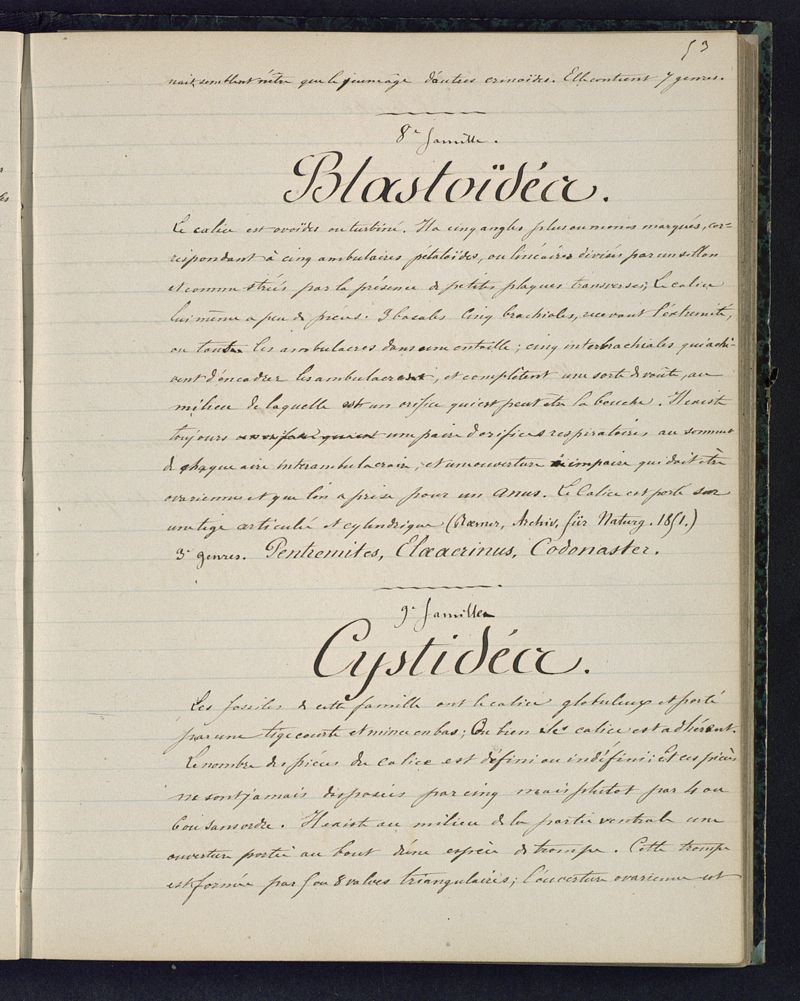 53
nait semblent n'être que le jeune âge d'autres crinoïdes. Elle contient 7 genres.
8e famille.
Blastoïdéa.
Le calice est ovoïdes ou turbiné. Il a cinq angles plus ou moins marqués, cor-
respondant à cinq ambulaires pétaloïdes, ou linéaires divisés par un sillon
et comme striés par la présence de petites plaques transverses; Le calice
lui même a peu de pièces. 3 basales Cinq brachiales, recevant l'extremité,
ou toutes les ambulacres dans une entaille; cinq interbrachiales qui achè-
vent d'encadrer les ambulacres, et complètent une sorte de voûte, au
milieu de laquelle est un orifice qui est peut être la bouche. Il existe
toujours une paire d'orifices respiratoires au sommet
de chaque aire interambulacraire, et une ouverture impaire qui doit être
ovarienne et que l'on a prise pour un anus. Le Calice est porté sur
une tige articulée et cylindrique (Rœmer, Archiv. für Naturg. 1851.)
3e genres. Pentremites, Elæacrinus, Codonaster.
9e famille
Cystidéa.
Les fossiles de cette famille ont le calice globuleux et porté
par une tige courte et mince en bas; Ou bien le calice est adhérent.
Le nombre des pièces du calice est défini ou indéfini; Et ces pièces
ne sont jamais disposées par cinq mais plutot par 4 ou
6 ou sans ordre. Il existe au milieu de la partie ventrale une
ouverture portée au bout d'une espèce de trompe. Cette trompe
est formée par 5 ou 8 valves triangulaires; l'ouverture ovarienne est